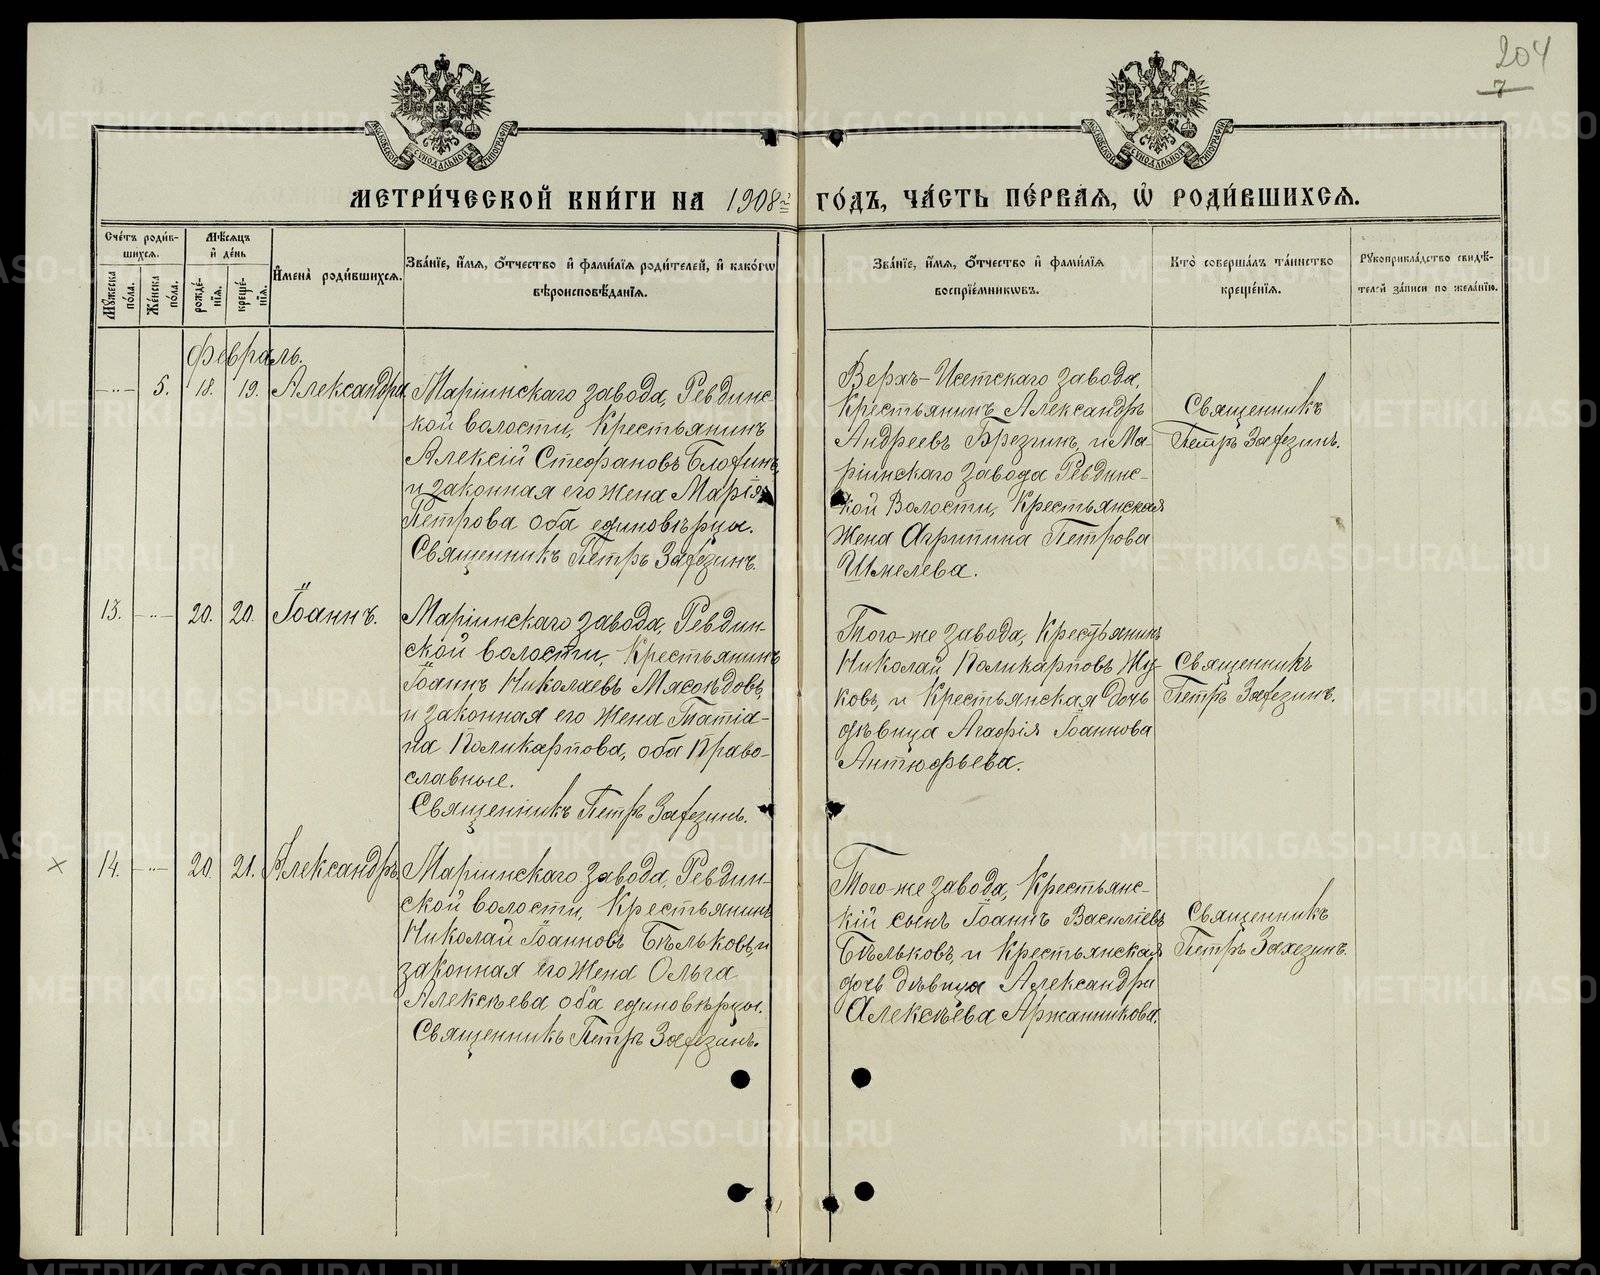 204
7
МОСКОВСКОЙ СѴНОДАЛЬНОЙ ТИПОГРАФІИ
МОСКОВСКОЙ СѴНОДАЛЬНОЙ ТИПОГРАФІИ
МЕТРИ́ЧЕСКОЙ КНИ́ГИ НА 1908 ГО́ДЪ, ЧА́СТЬ ПЕ́РВАѦ, Ѡ҆ РОДИ́ВШИХСѦ.
Сче́тъ роди́в-
шихсѧ.
Мѣ́сѧцъ
и҆ де́нь
Мꙋ́жеска
по́ла.
Же́нска
по́ла.
рожде́-
нїѧ.
креще́-
нїѧ.
И҆мена̀ роди́вшихсѧ.
Зва́нїе, и҆́мѧ, ѻ҆́тчество и҆ фамѝлїѧ роди́телей, и҆ како́гѡ
вѣроисповѣ́данїѧ.
Зва́нїе, и҆́мѧ, ѻ҆́тчество и҆ фамѝлїѧ
воспрїе́мникѡвъ.
Кто̀ соверша́лъ та́инство
креще́нїѧ.
Рꙋкоприкла́дство свидѣ́-
телей за́писи по жела́нїю.
Февраль.
5. 18. 19. Александра
Маріинскаго завода, Ревдинс-
кой волости, Крестьянинъ
Алексій Стефановъ Блохинъ,
и законная его жена Марія
Петрова оба единовѣрцы.
Священникъ Петръ Заѳезинъ.
Верхъ-Исетскаго завода,
Крестьянинъ Александръ
Андреевъ Брезгинъ, и Ма-
ріинскаго завода Ревдинс-
кой Волости, Крестьянская
жена Агрипина Петрова
Шмелева.
Священникъ
Петръ
13. 20. 20. Іоаннъ.
Маріинскаго завода, Ревдин-
ской волости, Крестьянинъ
Іоаннъ Николаевъ Мясоѣдовъ,
и законная его жена Татіа-
на Поликарпова, оба Право-
славные.
Священникъ Петръ
Того-же завода, Крестьянинъ
Николай Поликарповъ Жу-
ковъ, и Крестьянская дочь
дѣвица Агафія Іоаннова
Антюфьева.
Священникъ
Петръ
× 14. 20. 21. Александръ
Маріинскаго завода, Ревдин-
ской волости, Крестьянинъ
Николай Іоанновъ Бѣльковъ, и
законная его жена Ольга
Алексѣева оба единовѣрцы.
Священникъ Петръ
Того-же завода, Крестьянс-
кій сынъ Іоаннъ Василіевъ
Бѣльковъ, и Крестьянская
дочь дѣвица Александра
Алексѣева Аржанникова.
Священникъ
Петръ
METRIKI.GASO-URAL.RU